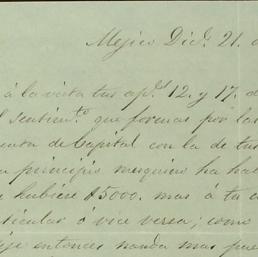 Mejico Dicе. 21. d
á la vista tus apr.s 12. y 17. d
l sentim.to que formas por las
enta de Capital con la de tus
principio mesquino ha hal
u hubiese $5000. mas á tu c
ticular ó vice versa; como
ije entonces nada mas pue